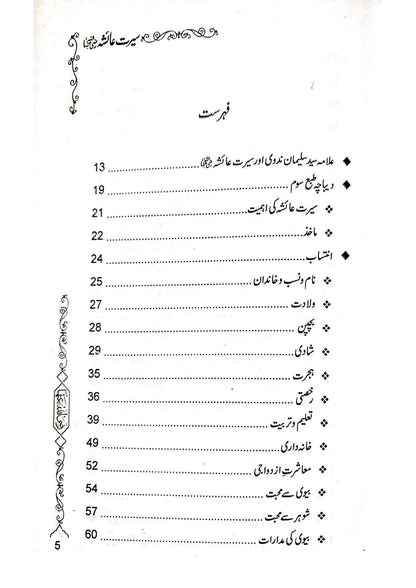 سیرت عائشہ رضی اللہ عنہا
فہرست
علامہ سید سلیمان ندوی اور سیرت عائشہ رضی اللہ عنہا ........ 13
دیباچہ طبع سوم ........ 19
سیرت عائشہ کی اہمیت ........ 21
ماخذ ........ 22
انتساب ........ 24
نام و نسب و خاندان ........ 25
ولادت ........ 27
بچپن ........ 28
شادی ........ 29
ہجرت ........ 35
رخصتی ........ 36
تعلیم و تربیت ........ 39
خانہ داری ........ 49
معاشرت ازدواجی ........ 52
بیوی سے محبت ........ 54
شوہر سے محبت ........ 57
بیوی کی مدارات ........ 60
5